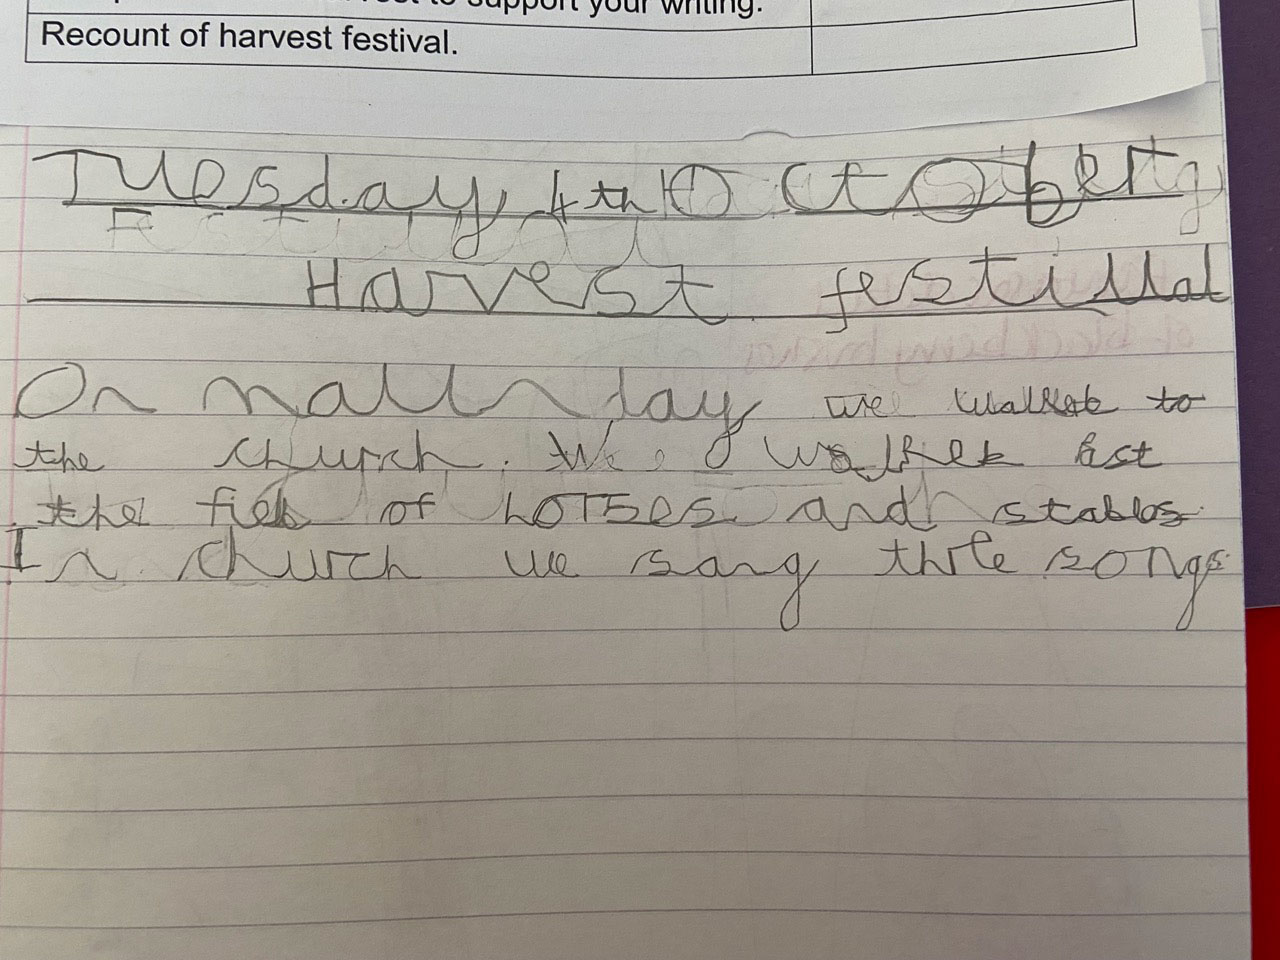 to support your writing.
Recount of harvest festival.
Tuesday 4th October
Harvest festillal
On we walket to
the church. We walket
the fiek of horses and stables
In church we sang three songs